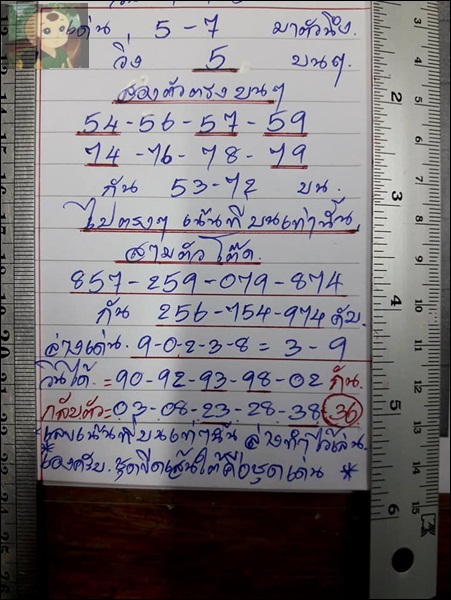 เด่น 5 - 7 มาตัวนึง.
วิ่ง 5 บนๆ.
สองตัวตรงบนๆ
54 - 56 - 57 - 59
74 - 76 - 78 - 79
กัน 53-72 บน.
ไปตรงๆ เน้นที่บนเท่านั้น
สามตัวโต๊ด.
857 - 259 - 079 - 874
กัน 256 - 754 - 974 ครับ.
ล่างเด่น. 9-0-2-3-8 = 3 - 9
วินได้. = 90-92-93-98-02 กัน.
กลับตัว = 03-08-23-28-38 36
*เลขเน้นที่บนเท่านั้น ล่างทำไว้เล่น.
*เองครับ. ชุดขีดเส้นใต้คือชุดเด่น *